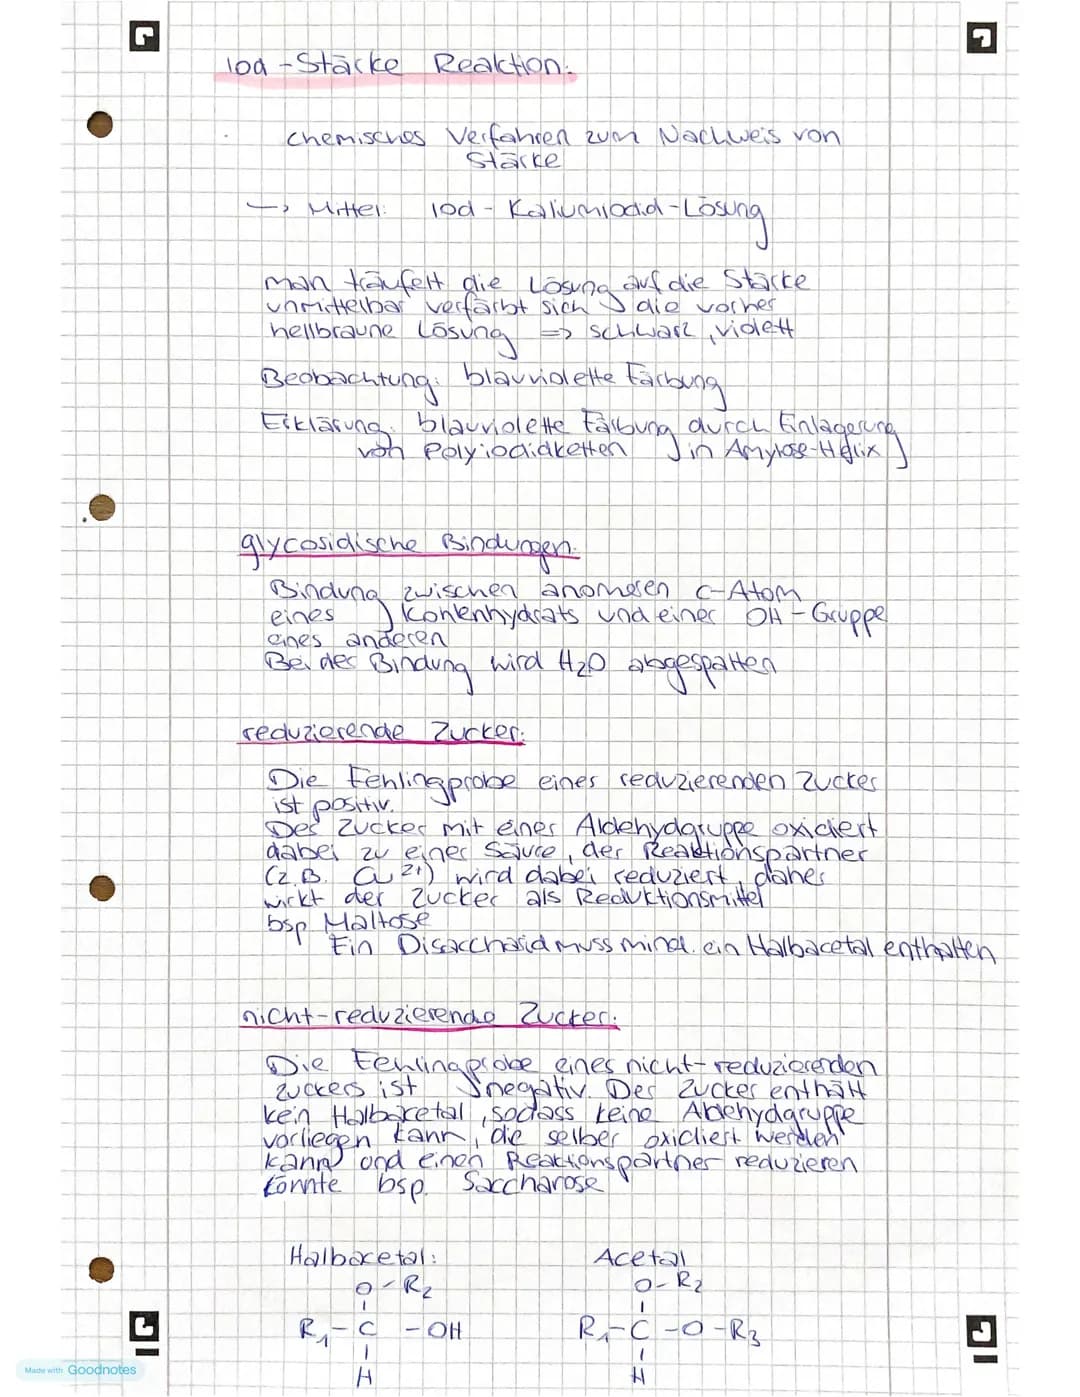 Iod-Stärke Reaktion:
chemisches Verfahren zum Nachweis von
Stärke
→ Mittel: Iod-Kaliumiodid-Lösung
man träufelt die Lösung auf die Stärke
unmittelbar verfärbt sich die vorher
hellbraune Lösung => schwarz, violett
Beobachtung: blauviolette Färbung
Erklärung: blauviolette Färbung durch Einlagerung
von Polyiodidketten in Amylose-Helix
glycosidische Bindungen:
Bindung zwischen anomeren C-Atom
eines Kohlenhydrats und einer OH-Gruppe
eines anderen
Bei der Bindung wird H₂O abgespalten
reduzierende Zucker:
Die Fehlingprobe eines reduzierenden Zucker
ist positiv.
Der Zucker mit einer Aldehydgruppe oxidiert
dabei zu einer Säure, der Reaktionspartner
(z.B. Cu²⁺) wird dabei reduziert, daher
wirkt der Zucker als Reduktionsmittel
bsp Maltose
Ein Disaccharid muss mind. ein Halbacetal enthalten
nicht-reduzierende Zucker:
Die Fehlingprobe eines nicht-reduzierenden
zuckers ist negativ. Der Zucker enthält
kein Halbacetal, sodass keine Aldehydgruppe
vorliegen kann, die selber oxidiert werden
kann und einen Reaktionspartner reduzieren
könnte bsp. Saccharose
Halbacetal: Acetal
O-R₂ O-R₂
R₁-C-OH R₁-C-O-R₃
H H
Made with Goodnotes